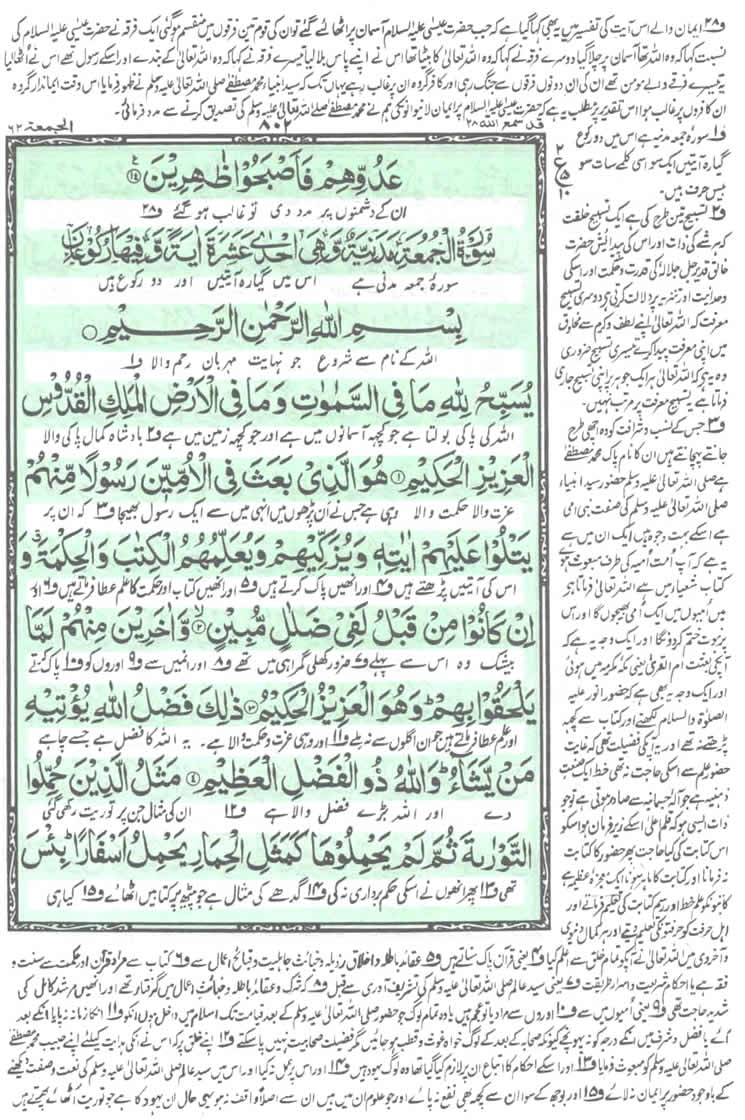 و٢٨ ایمان والے اس آیت کی تفسیر میں یہ بھی کہا گیا ہے کہ جب حضرت عیسیٰ علیہ السلام آسمان پر اٹھا لئے گئے تو ان کی قوم تین فرقوں میں منقسم ہوگئی ایک فرقہ نے حضرت عیسیٰ علیہ السلام کی
نسبت کہا کہ وہ اللہ تھا آسمان پر چلا گیا دوسرے فرقہ نے کہا کہ وہ اللہ تعالیٰ کا بیٹا تھا اس نے اپنے پاس بلا لیا تیسرے فرقہ نے کہا کہ وہ اللہ تعالیٰ کے بندے اور اسکے رسول تھے اس نے اٹھا لیا
یہ تیسرے فرقے والے مومن تھے ان کی ان دونوں فرقوں سے جنگ رہی اور کافر گروہ ان پر غالب رہے یہاں تک کہ سید انبیاء محمد مصطفےٰ صلی اللہ تعالیٰ علیہ وسلم نے ظہور فرمایا اس وقت ایماندار گروہ
ان کافروں پر غالب ہوا اس تقدیر پر مطلب یہ ہے کہ حضرت عیسیٰ علیہ السلام پر ایمان لانیوالونکی ہم نے محمد مصطفےٰ صلی اللہ تعالیٰ علیہ وسلم کی تصدیق کرنے سے مدد فرمائی۔
قد سمع اللہ ٢٨
٨٠٢
الجمعة ٦٢
عَدُوِّهِمْ فَاَصْبَحُوْا ظٰهِرِيْنَ ۝١٤
ان کے دشمنوں پر مدد دی تو غالب ہو گئے و٢٨
سُوْرَةُ الْجُمُعَةِ مَدَنِيَّةٌ وَّهِيَ اِحْدٰى عَشَرَةَ اٰيَةً وَّفِيْهَا رُكُوْعَانِ
سورۂ جمعہ مدنی ہے اس میں گیارہ آیتیں اور دو رکوع ہیں
بِسْمِ اللّٰهِ الرَّحْمٰنِ الرَّحِيْمِ ۝
اللہ کے نام سے شروع جو نہایت مہربان رحم والا و١
يُسَبِّحُ لِلّٰهِ مَا فِي السَّمٰوٰتِ وَمَا فِي الْاَرْضِ الْمَلِكِ الْقُدُّوْسِ
اللہ کی پاکی بولتا ہے جو کچھ آسمانوں میں ہے اور جو کچھ زمین میں ہے و٢ بادشاہ کمال پاکی والا
الْعَزِيْزِ الْحَكِيْمِ ۝١ هُوَ الَّذِيْ بَعَثَ فِي الْاُمِّيّٖنَ رَسُوْلًا مِّنْهُمْ
عزت والا حکمت والا وہی ہے جس نے ان پڑھوں میں انہی میں سے ایک رسول بھیجا و٣ کہ ان پر
يَتْلُوْا عَلَيْهِمْ اٰيٰتِهٖ وَيُزَكِّيْهِمْ وَيُعَلِّمُهُمُ الْكِتٰبَ وَالْحِكْمَةَ وَ
اس کی آیتیں پڑھتے ہیں و٤ اور انھیں پاک کرتے ہیں و٥ اور انھیں کتاب اور حکمت کا علم عطا فرماتے ہیں و٦ اور
اِنْ كَانُوْا مِنْ قَبْلُ لَفِيْ ضَلٰلٍ مُّبِيْنٍ ۝٢ وَّاٰخَرِيْنَ مِنْهُمْ لَمَّا
بیشک وہ اس سے پہلے و٧ ضرور کھلی گمراہی میں تھے و٨ اور انمیں سے و٩ اوروں کو و١٠ پاک کرتے
يَلْحَقُوْا بِهِمْ ؕ وَهُوَ الْعَزِيْزُ الْحَكِيْمُ ۝٣ ذٰلِكَ فَضْلُ اللّٰهِ يُؤْتِيْهِ
اور علم عطا فرماتے ہیں جو ان اگلوں سے نہ ملے و١١ اور وہی عزت و حکمت والا ہے۔ یہ اللہ کا فضل ہے جسے چاہے
مَنْ يَّشَآءُ ؕ وَاللّٰهُ ذُو الْفَضْلِ الْعَظِيْمِ ۝٤ مَثَلُ الَّذِيْنَ حُمِّلُوا
دے اور اللہ بڑے فضل والا ہے و١٢ ان کی مثال جن پر توریت رکھی گئی
التَّوْرٰىةَ ثُمَّ لَمْ يَحْمِلُوْهَا كَمَثَلِ الْحِمَارِ يَحْمِلُ اَسْفَارًا ؕ بِئْسَ
تھی و١٣ پھر انھوں نے اسکی حکم برداری نہ کی و١٤ گدھے کی مثال ہے جو پیٹھ پر کتابیں اٹھائے و١٥ کیا ہی
و١ سورۂ جمعہ مدنیہ ہے اس میں دو رکوع
گیارہ آیتیں ایک سو اسی کلمے سات سو
بیس حرف ہیں۔
و٢ تسبیح تین طرح کی ہے ایک تسبیح خلقت
کہ ہر شے کی ذات اور اس کی پیدائش حضرت
خالق قدیر جل جلالہ کی قدرت و حکمت اور اسکی
وحدانیت اور تنزیہ پر دلالت کرتی ہے دوسری تسبیح
معرفت کہ اللہ تعالیٰ اپنے لطف و کرم سے مخلوق
میں اپنی معرفت پیدا کرے تیسری تسبیح ضروری
وہ یہ ہے کہ اللہ تعالیٰ ہر ایک جوہر پر اپنی تسبیح جاری
فرماتا ہے یہ تسبیح معرفت پر مرتب نہیں۔
و٣ جس کے نسب و شرافت کو وہ اچھی طرح
جانتے پہچانتے ہیں ان کا نام پاک محمد مصطفےٰ
ہے صلی اللہ تعالیٰ علیہ وسلم حضور سید انبیاء
صلی اللہ تعالیٰ علیہ وسلم کی صفت نبی امی
ہے اسکے بہت وجوہ ہیں ایک ان میں سے
یہ ہے کہ آپ اُمت اُمیہ کی طرف مبعوث ہوئے
کتاب شعیا میں ہے اللہ تعالیٰ فرماتا ہے
میں اُمیوں میں ایک اُمی بھیجوں گا اور اس
پر نبوت ختم کردوں گا اور ایک وجہ یہ ہے کہ
آپکی بعثت ام القریٰ یعنی مکہ مکرمہ میں ہوئی
اور ایک وجہ یہ بھی ہے کہ حضور انور علیہ
الصلوٰة والسلام لکھتے اور کتاب سے کچھ
پڑھتے نہ تھے اور یہ آپکی فضیلت تھی کہ غایت
حضور علم سے اسکی حاجت نہ تھی خط ایک صنعت
ذہنیہ ہے جو آلہ جسمانیہ سے صادر ہوتی ہے تو جو
ذات ایسی ہو کہ قلم اعلیٰ اسکے زیر فرمان ہو اسکو
اس کتابت کی کیا حاجت پھر حضور کا کتابت
نہ فرمانا اور کتابت کا ماہر ہونا ایک معجزۂ عظیمہ ہے
کاتبونکو علم خط اور رسم کتابت کی تعلیم فرماتے اور
اہل حرفت کو حرفتونکی تعلیم دیتے اور ہر کمال دنیوی
و اخروی میں اللہ تعالیٰ نے آپکو تمام خلق سے اعلم کیا و٤ یعنی قرآن پاک سناتے ہیں و٥ عقائد باطلہ و اخلاق رذیلہ و خبائث جاہلیت و قبائح اعمال سے و٦ کتاب سے مراد قرآن اور حکمت سے سنت و
فقہ ہے یا احکام شریعت و اسرار طریقت و٧ یعنی سید عالم صلی اللہ تعالیٰ علیہ وسلم کی تشریف آوری سے قبل و٨ کہ شرک و عقائد باطلہ و خبائث اعمال میں گرفتار تھے اور انھیں مرشد کامل کی
شدید حاجت تھی و٩ یعنی اُمیوں میں سے و١٠ اوروں سے مراد یا تو عجم ہیں یا وہ تمام لوگ جو حضور صلی اللہ تعالیٰ علیہ وسلم کے بعد قیامت تک اسلام میں داخل ہوں انکو و١١ انکا زمانہ نہ پایا انکے بعد
آئے یا فضل و شرف میں انکے درجہ کو نہ پہونچے کیونکہ صحابہ کے بعد کے لوگ خواہ غوث و قطب ہوجائیں مگر فضیلت صحابیت نہیں پاسکتے و١٢ اپنے خلق پر کہ اس نے انکی ہدایت کیلئے اپنے حبیب محمد مصطفےٰ
صلی اللہ تعالیٰ علیہ وسلم کو مبعوث فرمایا و١٣ اور اسکے احکام کا اتباع ان پر لازم کیا گیا تھا وہ لوگ یہود ہیں و١٤ اور اس پر عمل نہ کیا اور اس میں سید عالم صلی اللہ تعالیٰ علیہ وسلم کی نعت و صفت دیکھنے
کے باوجود حضور پر ایمان نہ لائے و١٥ اور بوجھ کے سوا ان سے کچھ بھی نفع نہ پائے اور جو علوم ان میں ہیں ان سے اصلاً واقف نہ ہو یہی حال ان یہود کا ہے جو توریت اُٹھائے پھرتے ہیں